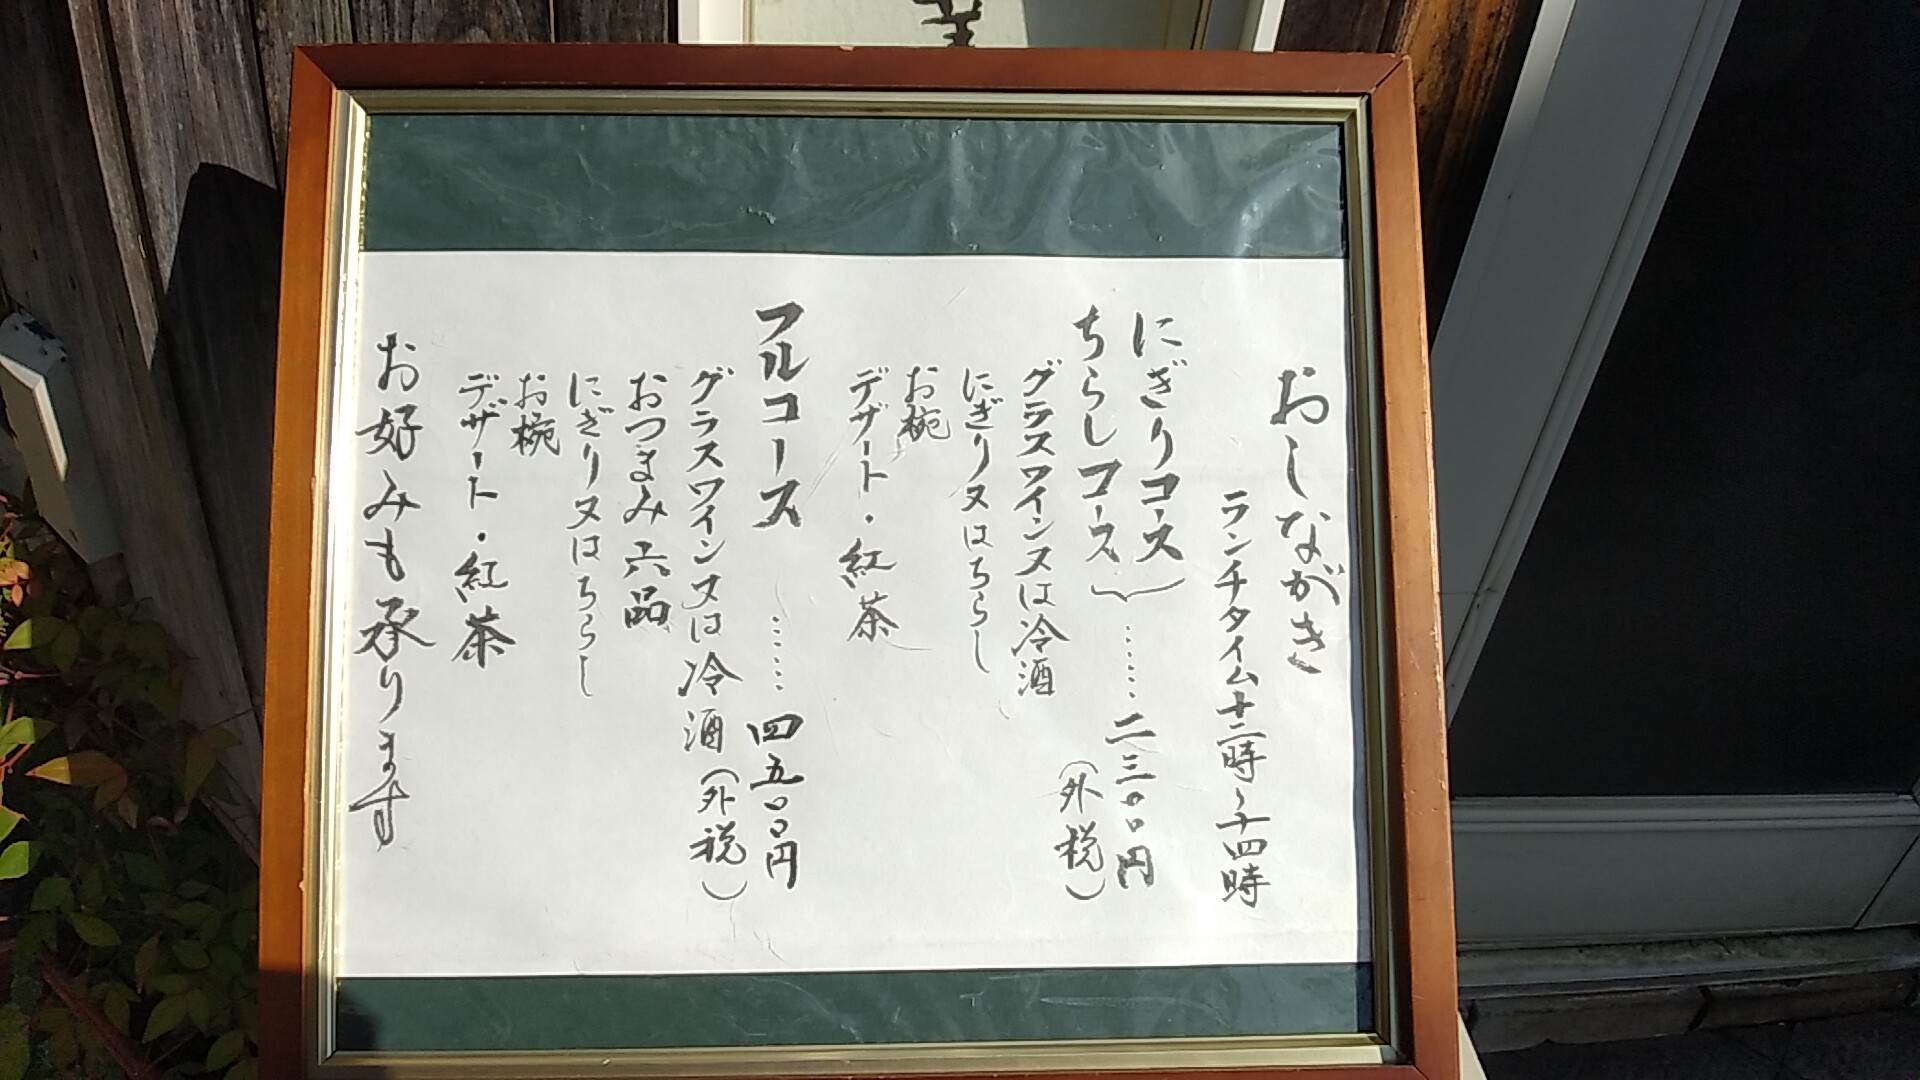 おしながき
ランチタイム十二時〜十四時
にぎりコース
ちらしコース
……二三〇〇円
(外税)
グラスワイン又は冷酒
にぎり又はちらし
お椀
デザート・紅茶
フルコース……四五〇〇円
グラスワイン又は冷酒(外税)
おつまみ六品
にぎり又はちらし
お椀
デザート・紅茶
お好みも承ります